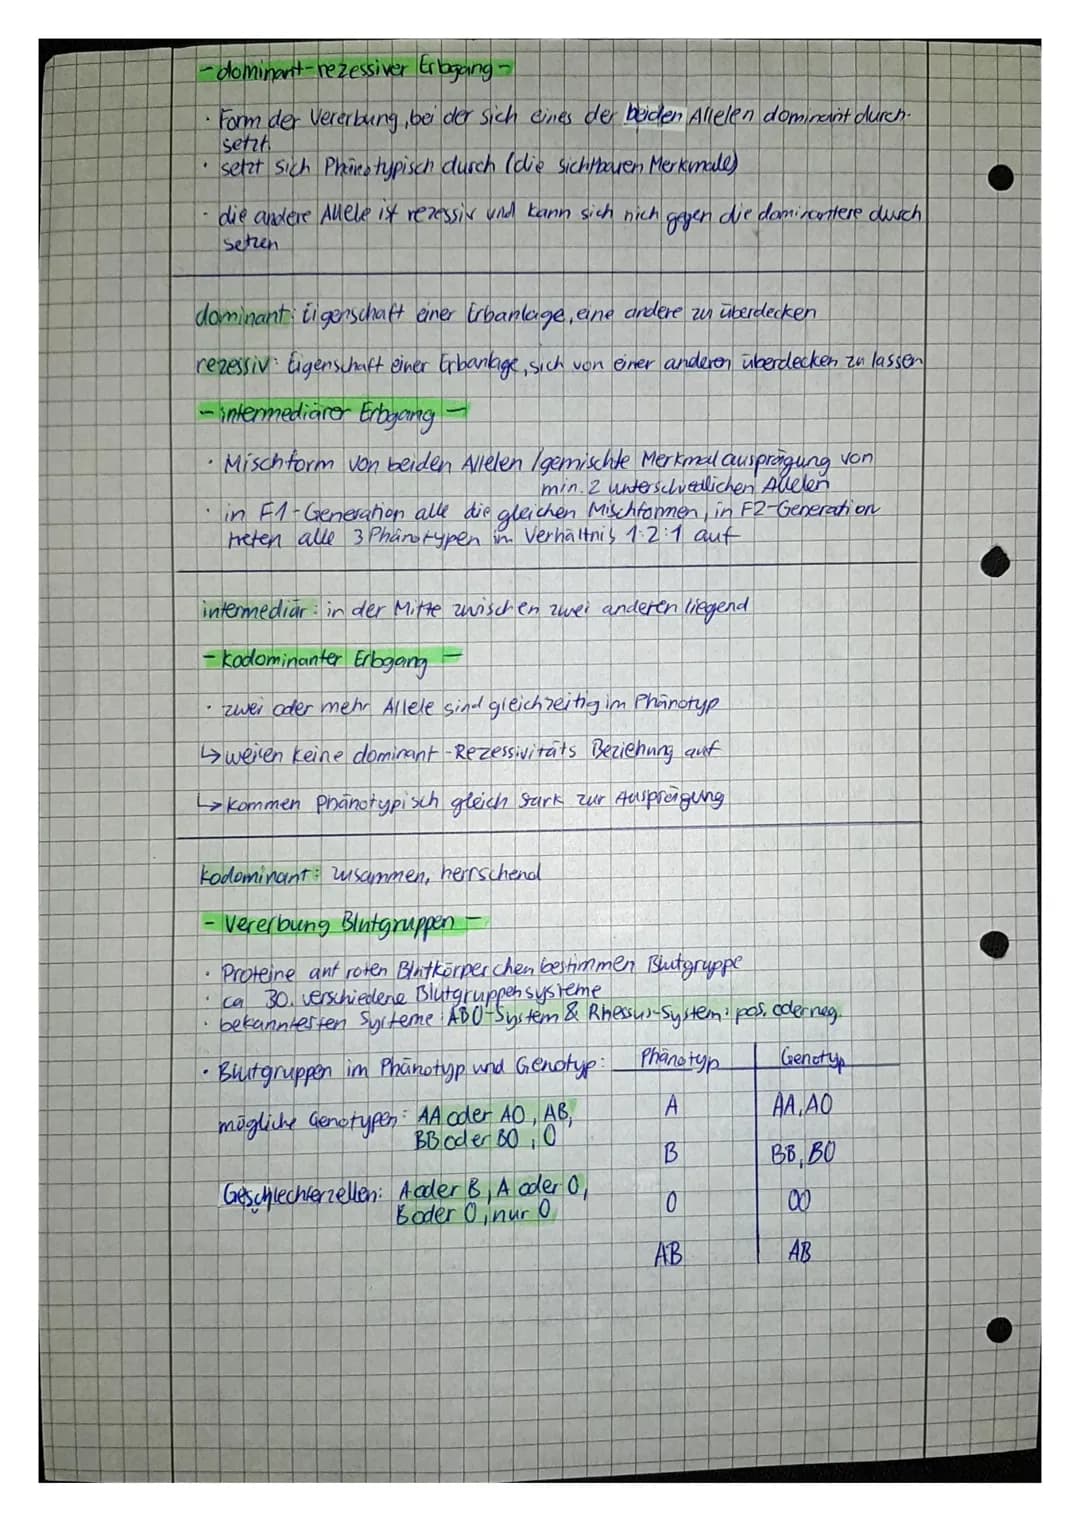 - dominant-rezessiver Erbgang -
· Form der Vererbung, bei der sich eines der beiden Allelen dominant durch-
setzt
· setzt sich Phänotypisch durch (die sichtbaren Merkmale)
· die andere Allele ist rezessiv und kann sich nich gegen die dominantere durch
setzen
dominant: Eigenschaft einer Erbanlage, eine andere zu überdecken
rezessiv: Eigenschaft einer Erbanlage, sich von einer anderen überdecken zu lassen
- intermediärer Erbgang -
· Mischform von beiden Allelen / gemischte Merkmalausprägung von
min. 2 unterschiedlichen Allelen
· in F1-Generation alle die gleichen Mischformen, in F2-Generation
treten alle 3 Phänotypen im Verhältnis 1:2:1 auf
intermediär: in der Mitte zwischen zwei anderen liegend
- Kodominanter Erbgang -
· zwei oder mehr Allele sind gleichzeitig im Phänotyp
↳ weisen keine dominant-Rezessivitäts Beziehung auf
↳ kommen Phänotypisch gleich stark zur Ausprägung
kodominant: zusammen, herrschend
- Vererbung Blutgruppen -
· Proteine auf roten Blutkörperchen bestimmen Blutgruppe
· ca 30. verschiedene Blutgruppensysteme
· bekanntesten Systeme: AB0-System & Rhesus-System: pos. oder neg.
· Blutgruppen im Phänotyp und Genotyp: Phänotyp Genotyp
mögliche Genotypen: AA oder A0, AB, A AA, A0
BB oder B0, 0
B BB, B0
Geschlechterzellen: A oder B, A oder 0, 0 00
B oder 0, nur 0
AB AB